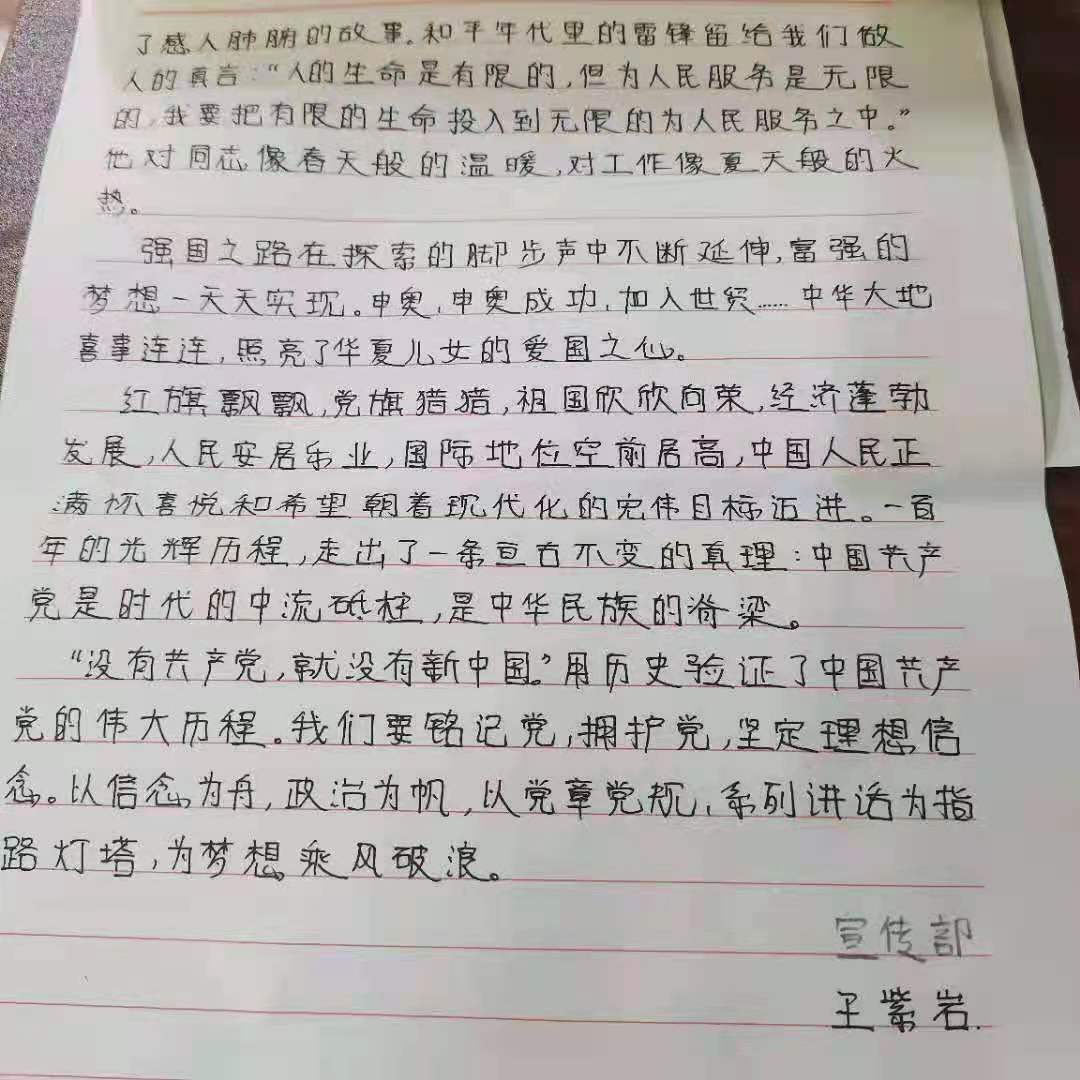 了感人肺腑的故事。和平年代里的雷锋留给我们做
人的真言：“人的生命是有限的，但为人民服务是无限
的，我要把有限的生命投入到无限的为人民服务之中。”
他对同志像春天般的温暖，对工作像夏天般的火
热。
强国之路在探索的脚步声中不断延伸，富强的
梦想一天天实现。申奥，申奥成功，加入世贸……中华大地
喜事连连，照亮了华夏儿女的爱国之心。
红旗飘飘，党旗猎猎，祖国欣欣向荣，经济蓬勃
发展，人民安居乐业，国际地位空前居高，中国人民正
满怀喜悦和希望朝着现代化的宏伟目标迈进。一百
年的光辉历程，走出了一条亘古不变的真理：中国共产
党是时代的中流砥柱，是中华民族的脊梁。
“没有共产党，就没有新中国。”用历史验证了中国共产
党的伟大历程。我们要铭记党，拥护党，坚定理想信
念。以信念为舟，政治为帆，以党章党规、系列讲话为指
路灯塔，为梦想乘风破浪。
宣传部
王紫岩.